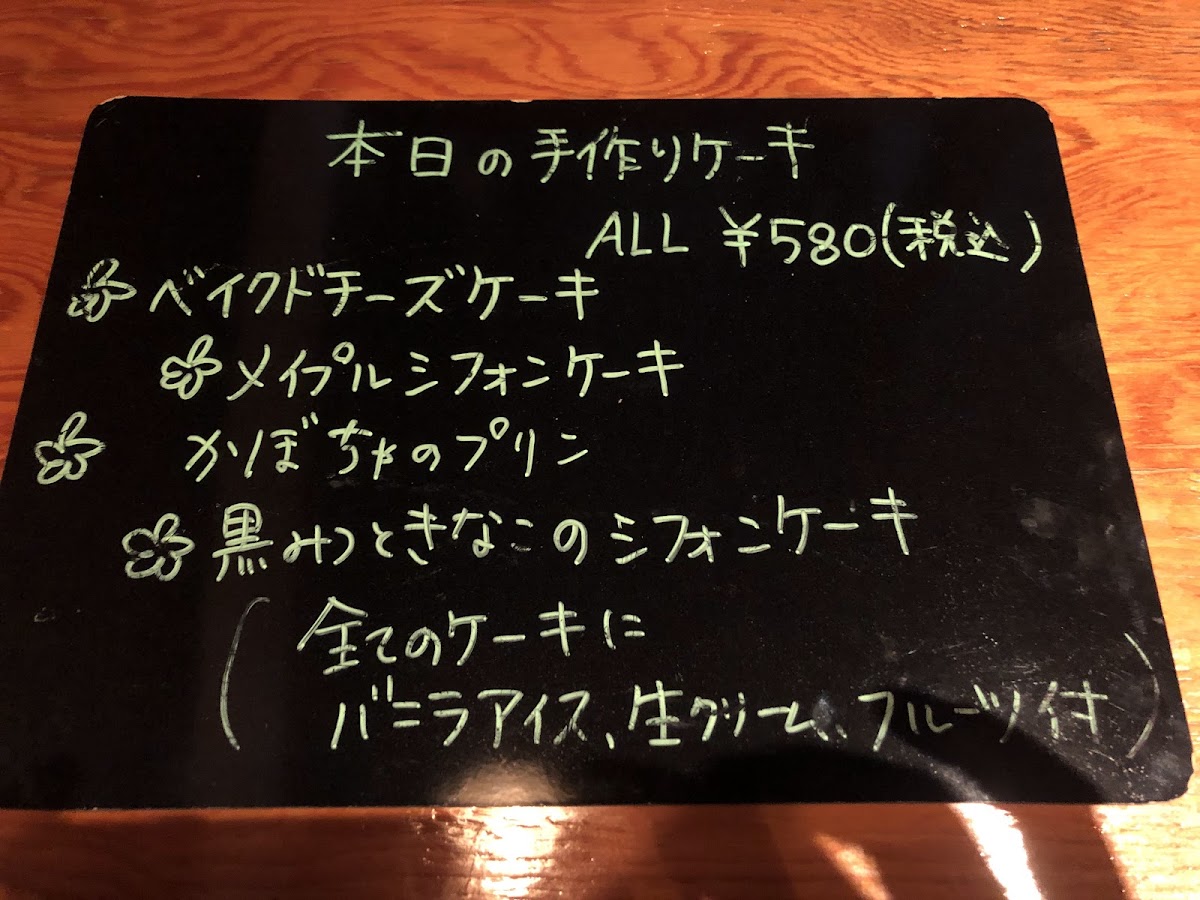 本日の手作りケーキ
ALL ¥580(税込)
ベイクドチーズケーキ
メイプルシフォンケーキ
かぼちゃのプリン
黒みつときなこのシフォンケーキ
(全てのケーキに
バニラアイス、生クリーム、フルーツ付)